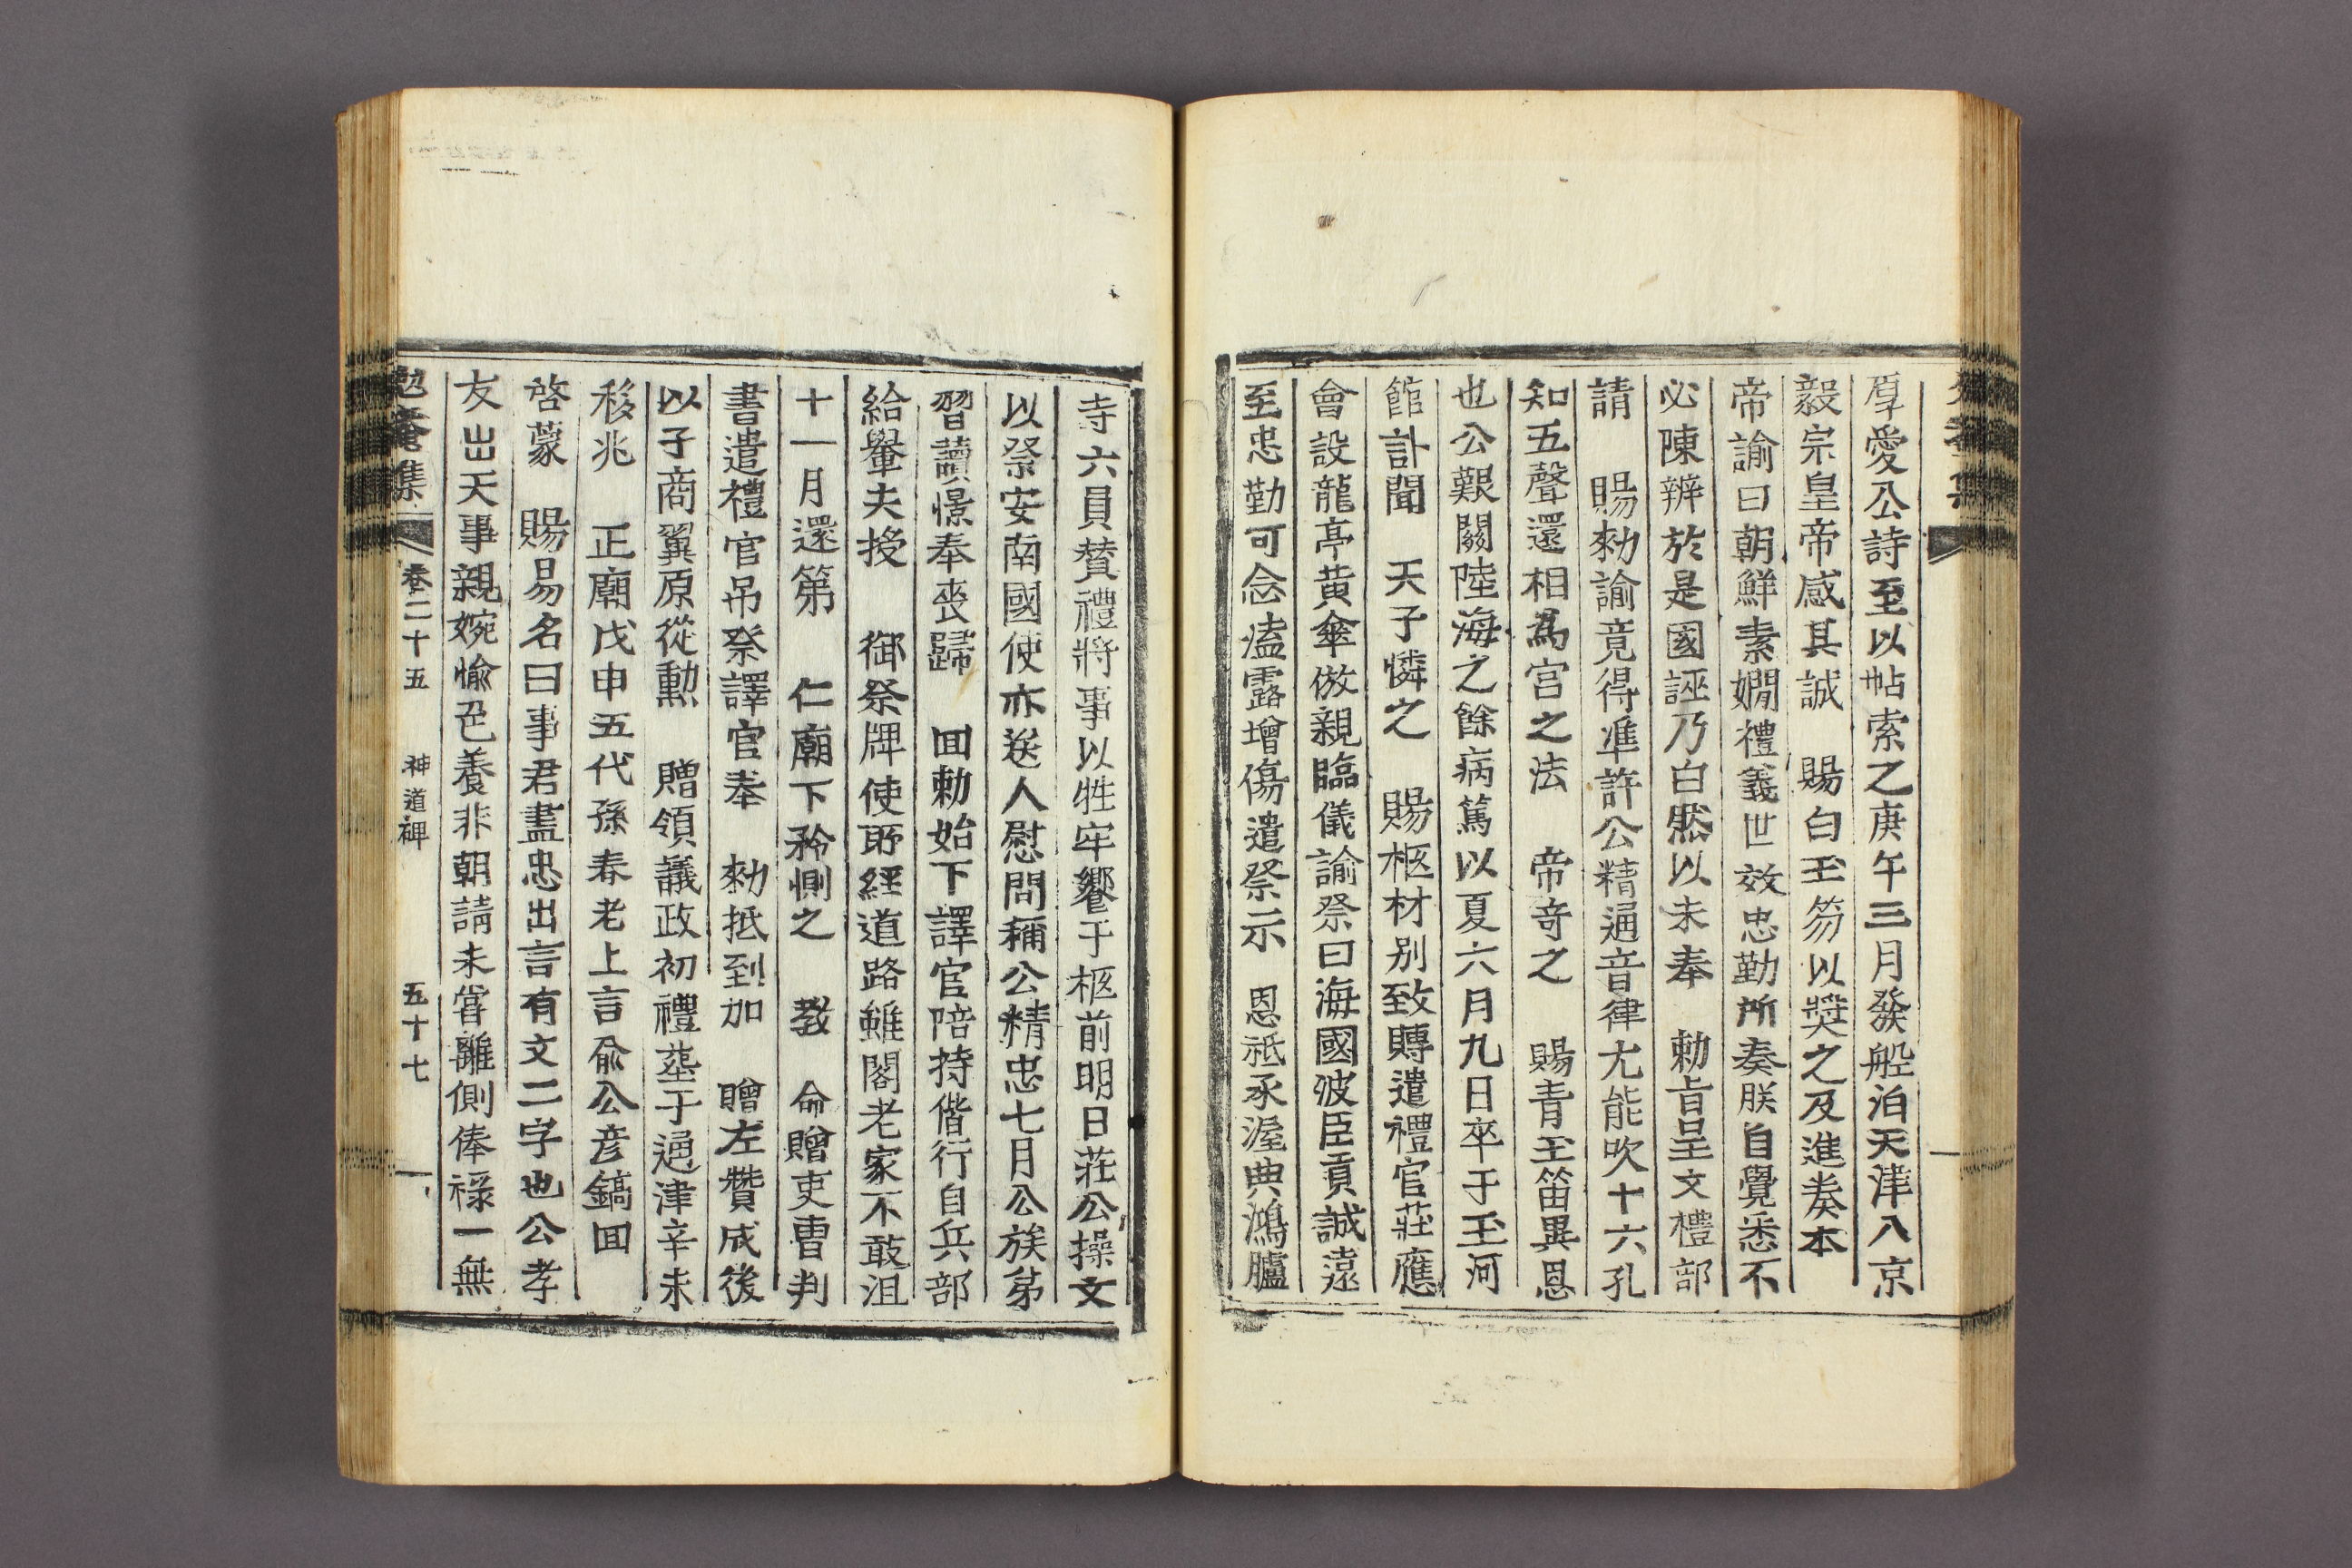 厚愛公詩至以帖索之庚午三月發船泊天津入京
毅宗皇帝感其誠 賜白玉笏以奬之及進奏本
帝諭曰朝鮮素嫺禮義世效忠勤所奏朕自覺悉不
必陳辨於是國誣乃白然以未奉 勅旨呈文禮部
請 賜勑諭竟得準許公精通音律尤能吹十六孔
知五聲還相爲宮之法 帝奇之 賜靑玉笛異恩
也公艱關陸海之餘病篤以夏六月九日卒于玉河
館訃聞 天子憐之 賜柩材別致賻遣禮官莊應
會設龍亭黃傘倣親臨儀諭祭曰海國波臣貢誠遠
至忠勤可念溘露增傷遣祭示 恩祗承渥典鴻臚
寺六員贊禮將事以牲牢饗于柩前明日莊公操文
以祭安南國使亦送人慰問稱公精忠七月公族弟
習讀憬奉喪歸 回勅始下譯官陪持偕行自兵部
給轝夫授 御祭牌使所經道路雖閣老家不敢沮
十一月還第 仁廟下矜惻之 敎 命贈吏曹判
書遣禮官吊祭譯官奉 勑抵到加 贈左贊成後
以子商翼原從勳 贈領議政初禮葬于通津辛未
移兆 正廟戊申五代孫春老上言兪公彦鎬回
啓蒙 賜易名曰事君盡忠出言有文二字也公孝
友出天事親婉愉色養非朝請未甞離側俸祿一無
勉菴集 卷二十五 神道碑 五十七